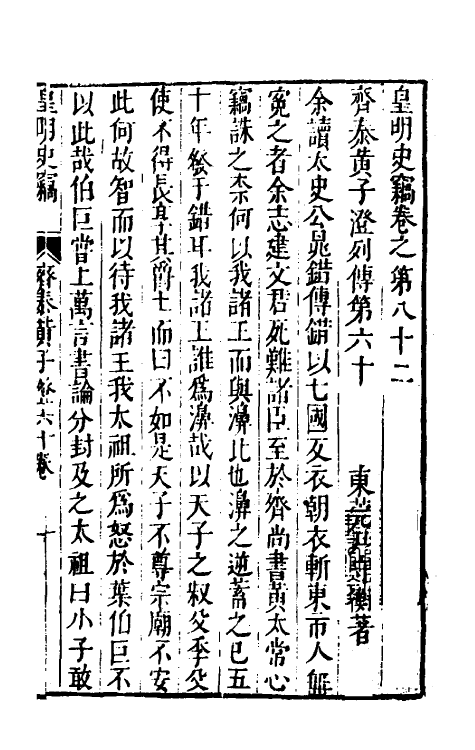 皇明史竊卷之第八十二
齊泰黃子澄列傳第六十
東莞尹守衡著
余讀太史公晁錯傳錯以七國反衣朝衣斬東市人無
冤之者余志建文君死難諸臣至於齊尚書黃太常心
竊誅之柰何以我諸王而與濞比也濞之逆蓄之已五
十年發于錯耳我諸王誰爲濞哉以天子之叔父季父
使不得長享其爵土而曰不如是天子不尊宗廟不安
此何故智而以待我諸王我太祖所爲怒於葉伯巨不
以此哉伯巨嘗上萬言書論分封及之太祖曰小子敢
皇明史竊 齊泰黃子澄六十卷 一